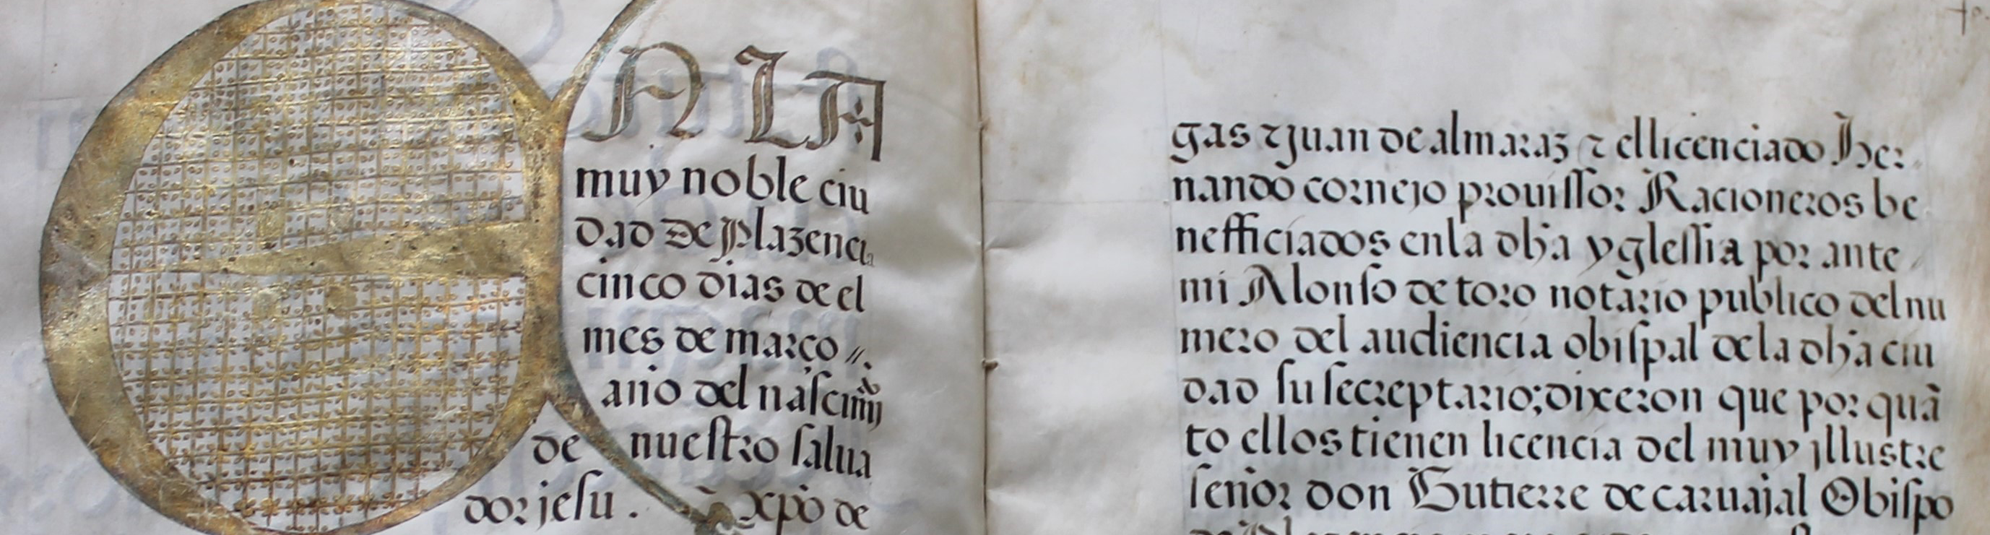 EN LA
muy noble ciu
dad de Plazencia
cinco dias de el
mes de março //.
año del nasçimiº
de nuestro salua
dor jesu . xpõ de
gas ⁊ juan de almaraz ⁊ el licenciado Her
nando cornejo prouissor Racioneros be
nefficiados en la dhã yglessia por ante
mi Alonso de toro notario publico del nu
mero del audiencia obispal de la dhã ciu
dad su secreptario; dixeron que por quã
to ellos tienen licencia del muy jllustre
señor don Gutierre de caruajal Obispo